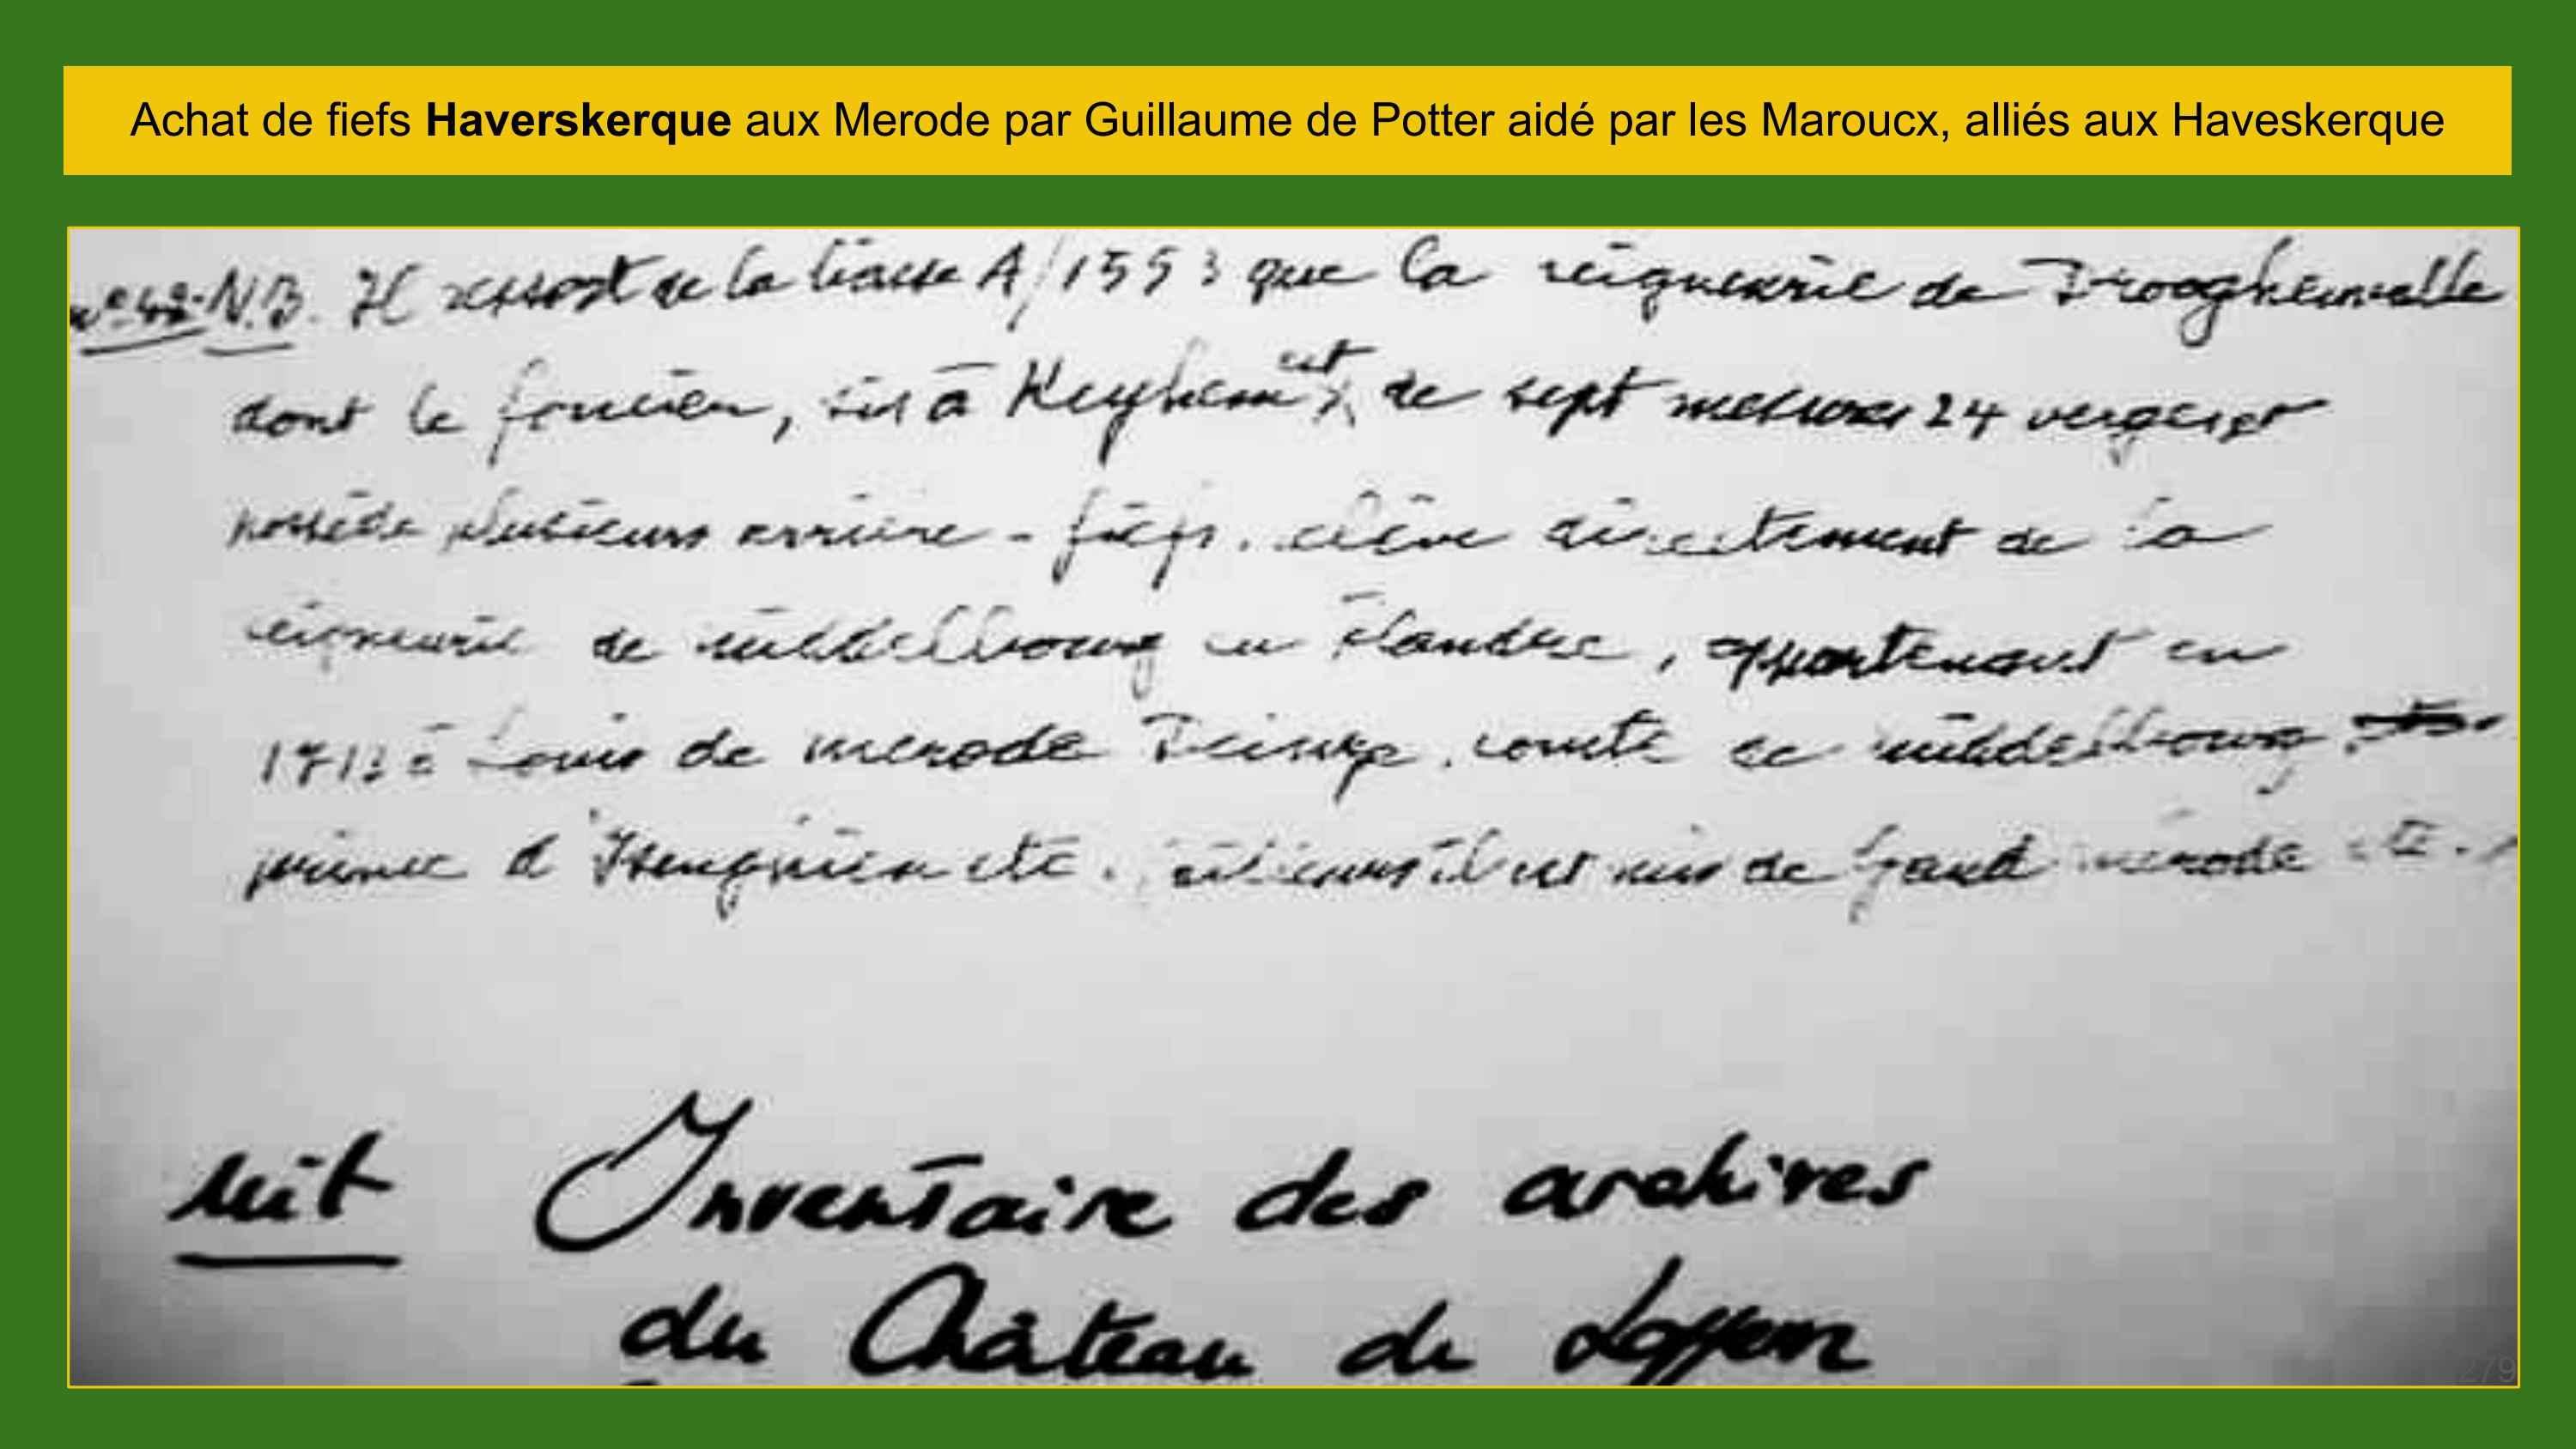 Achat de fiefs Haverskerque aux Merode par Guillaume de Potter aidé par les Maroucx, alliés aux Haveskerque
n° 42. N.B. Il ressort de la liasse A/1553 que la seigneurie de Drooghenwalle
dont le foncier, sis à Keyhem est de sept mesures 24 verges et
possède plusieurs arrière-fiefs. relève directement de la
seigneurie de middelbourg en Flandre, appartenant en
à Louis de merode Deinze, comte de middelbourg
prince d'Isenghien etc. il est mis de Gand merode etc.
Inventaire des archives
du Château de Loppem
279